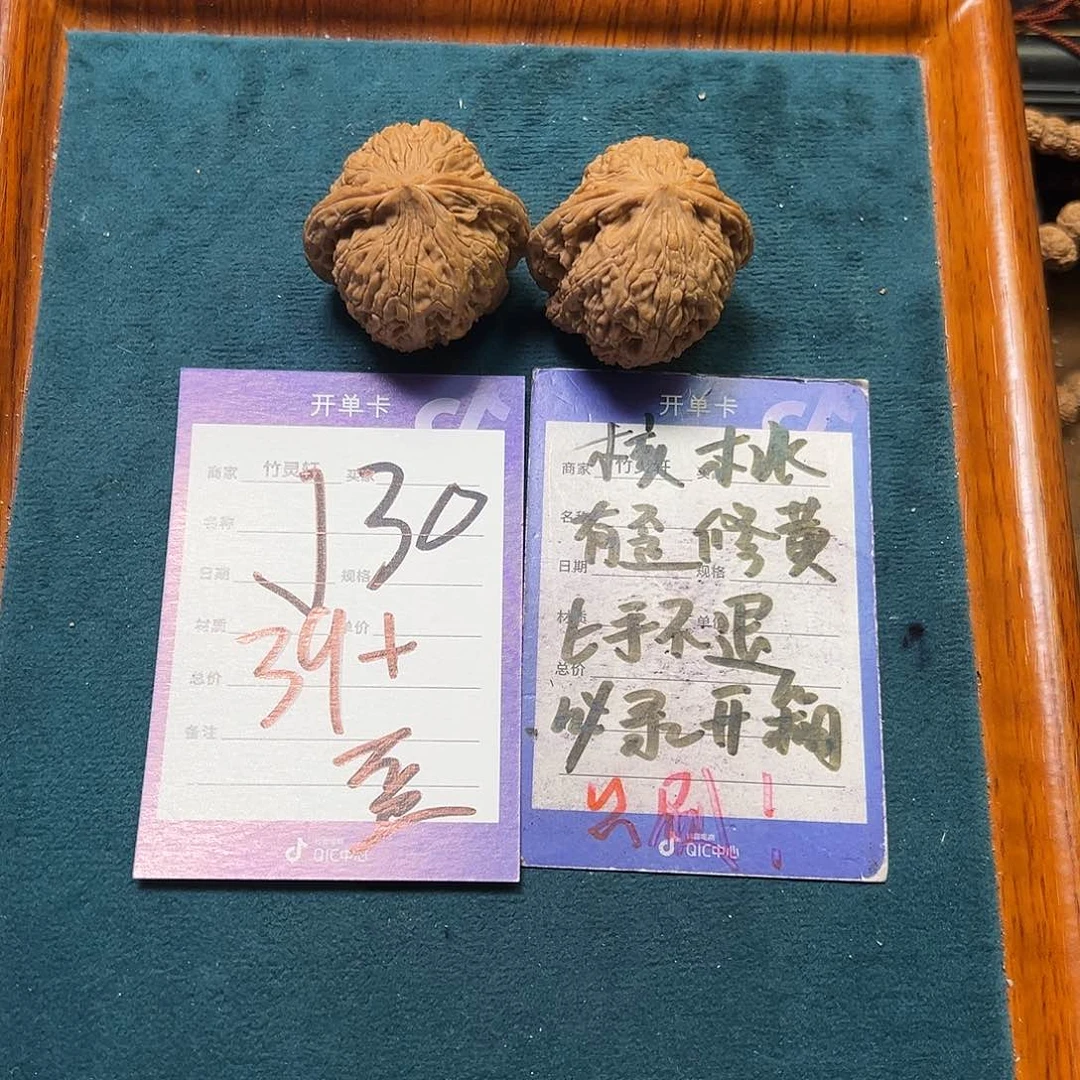 开单卡
商家 竹灵轩 买家
J30
名称
日期 规格
材质 单价
39+
总价
备注
歪
QIC中心
开单卡
核桃
商家 竹灵轩 买
名称
有歪修黄
日期 规格
材质 单价
上手不退
总价
以录开箱
只刷!
QIC中心